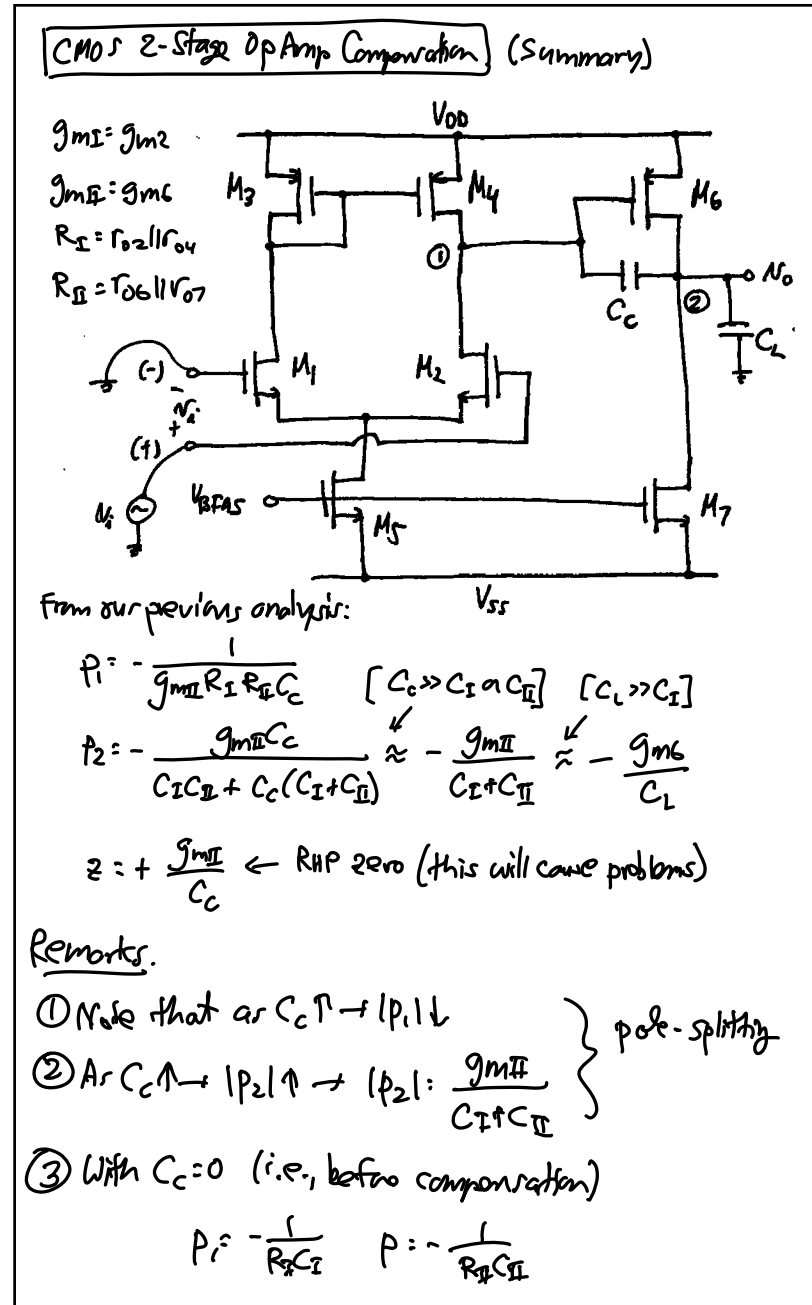 CMOS 2-Stage OpAmp Compensation (Summary)
VDD
gmI = gm2
gmII = gm6
RI = ro2||ro4
RII = ro6||ro7
M3
M4
M6
①
②
Cc
No
CL
M1
M2
(-)
-
Vi
+
(+)
Vi
VBIAS
M5
M7
VSS
From our previous analysis:
P1 = - 1 / (gmII RI RII Cc) [Cc >> CI or CII] [CL >> CI]
P2 = - gmII Cc / (CI CII + Cc (CI + CII)) ≈ - gmII / (CI + CII) ≈ - gm6 / CL
z = + gmII / Cc ← RHP zero (this will cause problems)
Remarks.
① Note that as Cc ↑ → |p1| ↓
pole-splitting
② As Cc ↑ → |p2| ↑ → |p2| = gmII / (CI + CII)
③ With Cc = 0 (i.e., before compensation)
P1 = - 1 / (RI CI) P = - 1 / (RII CII)